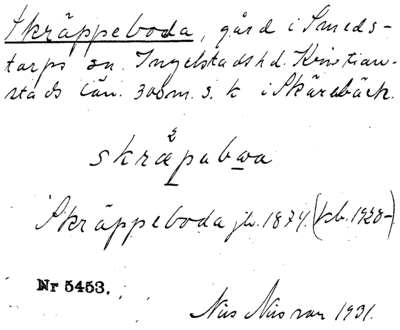 Skräppeboda, gård i Smeds-
torps sn. Ingelstads hd. Kristian-
stads län. 300 m. s. k i Skärebäck.
skræpabωa
Skräppeboda jb. 1874. (kb. 1928-)
Nr 5453.
Nils Nilsson 1931.